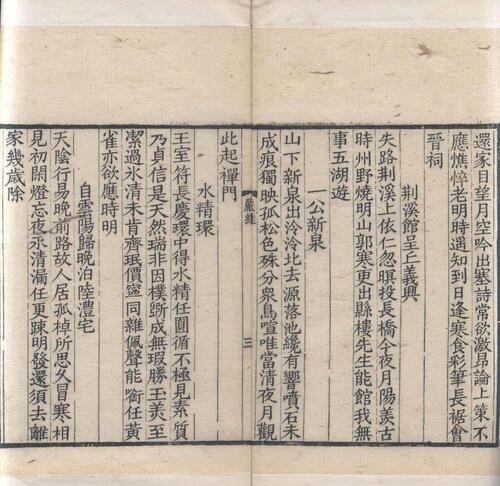 還家日望月空吟出塞詩常欲激昂論上策不
應憔悴老明時遥知到日逢寒食彩筆長裾會
晉祠
荆溪館呈丘義興
失路荆溪上依仁忽暝投長橋今夜月陽羨古
時州野燒明山郭寒更出縣樓先生能館我無
事五湖遊
一公新泉
山下新泉出泠泠北去源落池纔有響噴石未
成痕獨映孤松色殊分衆鳥喧唯當清夜月觀
此起禪門
嚴維
三
水精環
王室符長慶環中得水精任圓循不極見素質
乃貞信是天然瑞非因樸斵成無瑕勝玉美至
潔過氷清未肯齊珉價寧同雜佩聲能銜任黄
雀亦欲應時明
自雲陽歸晚泊陸澧宅
天陰行易晚前路故人居孤棹所思久冒寒相
見初閑燈忘夜永清漏任更踈明發還須去離
家幾歲除